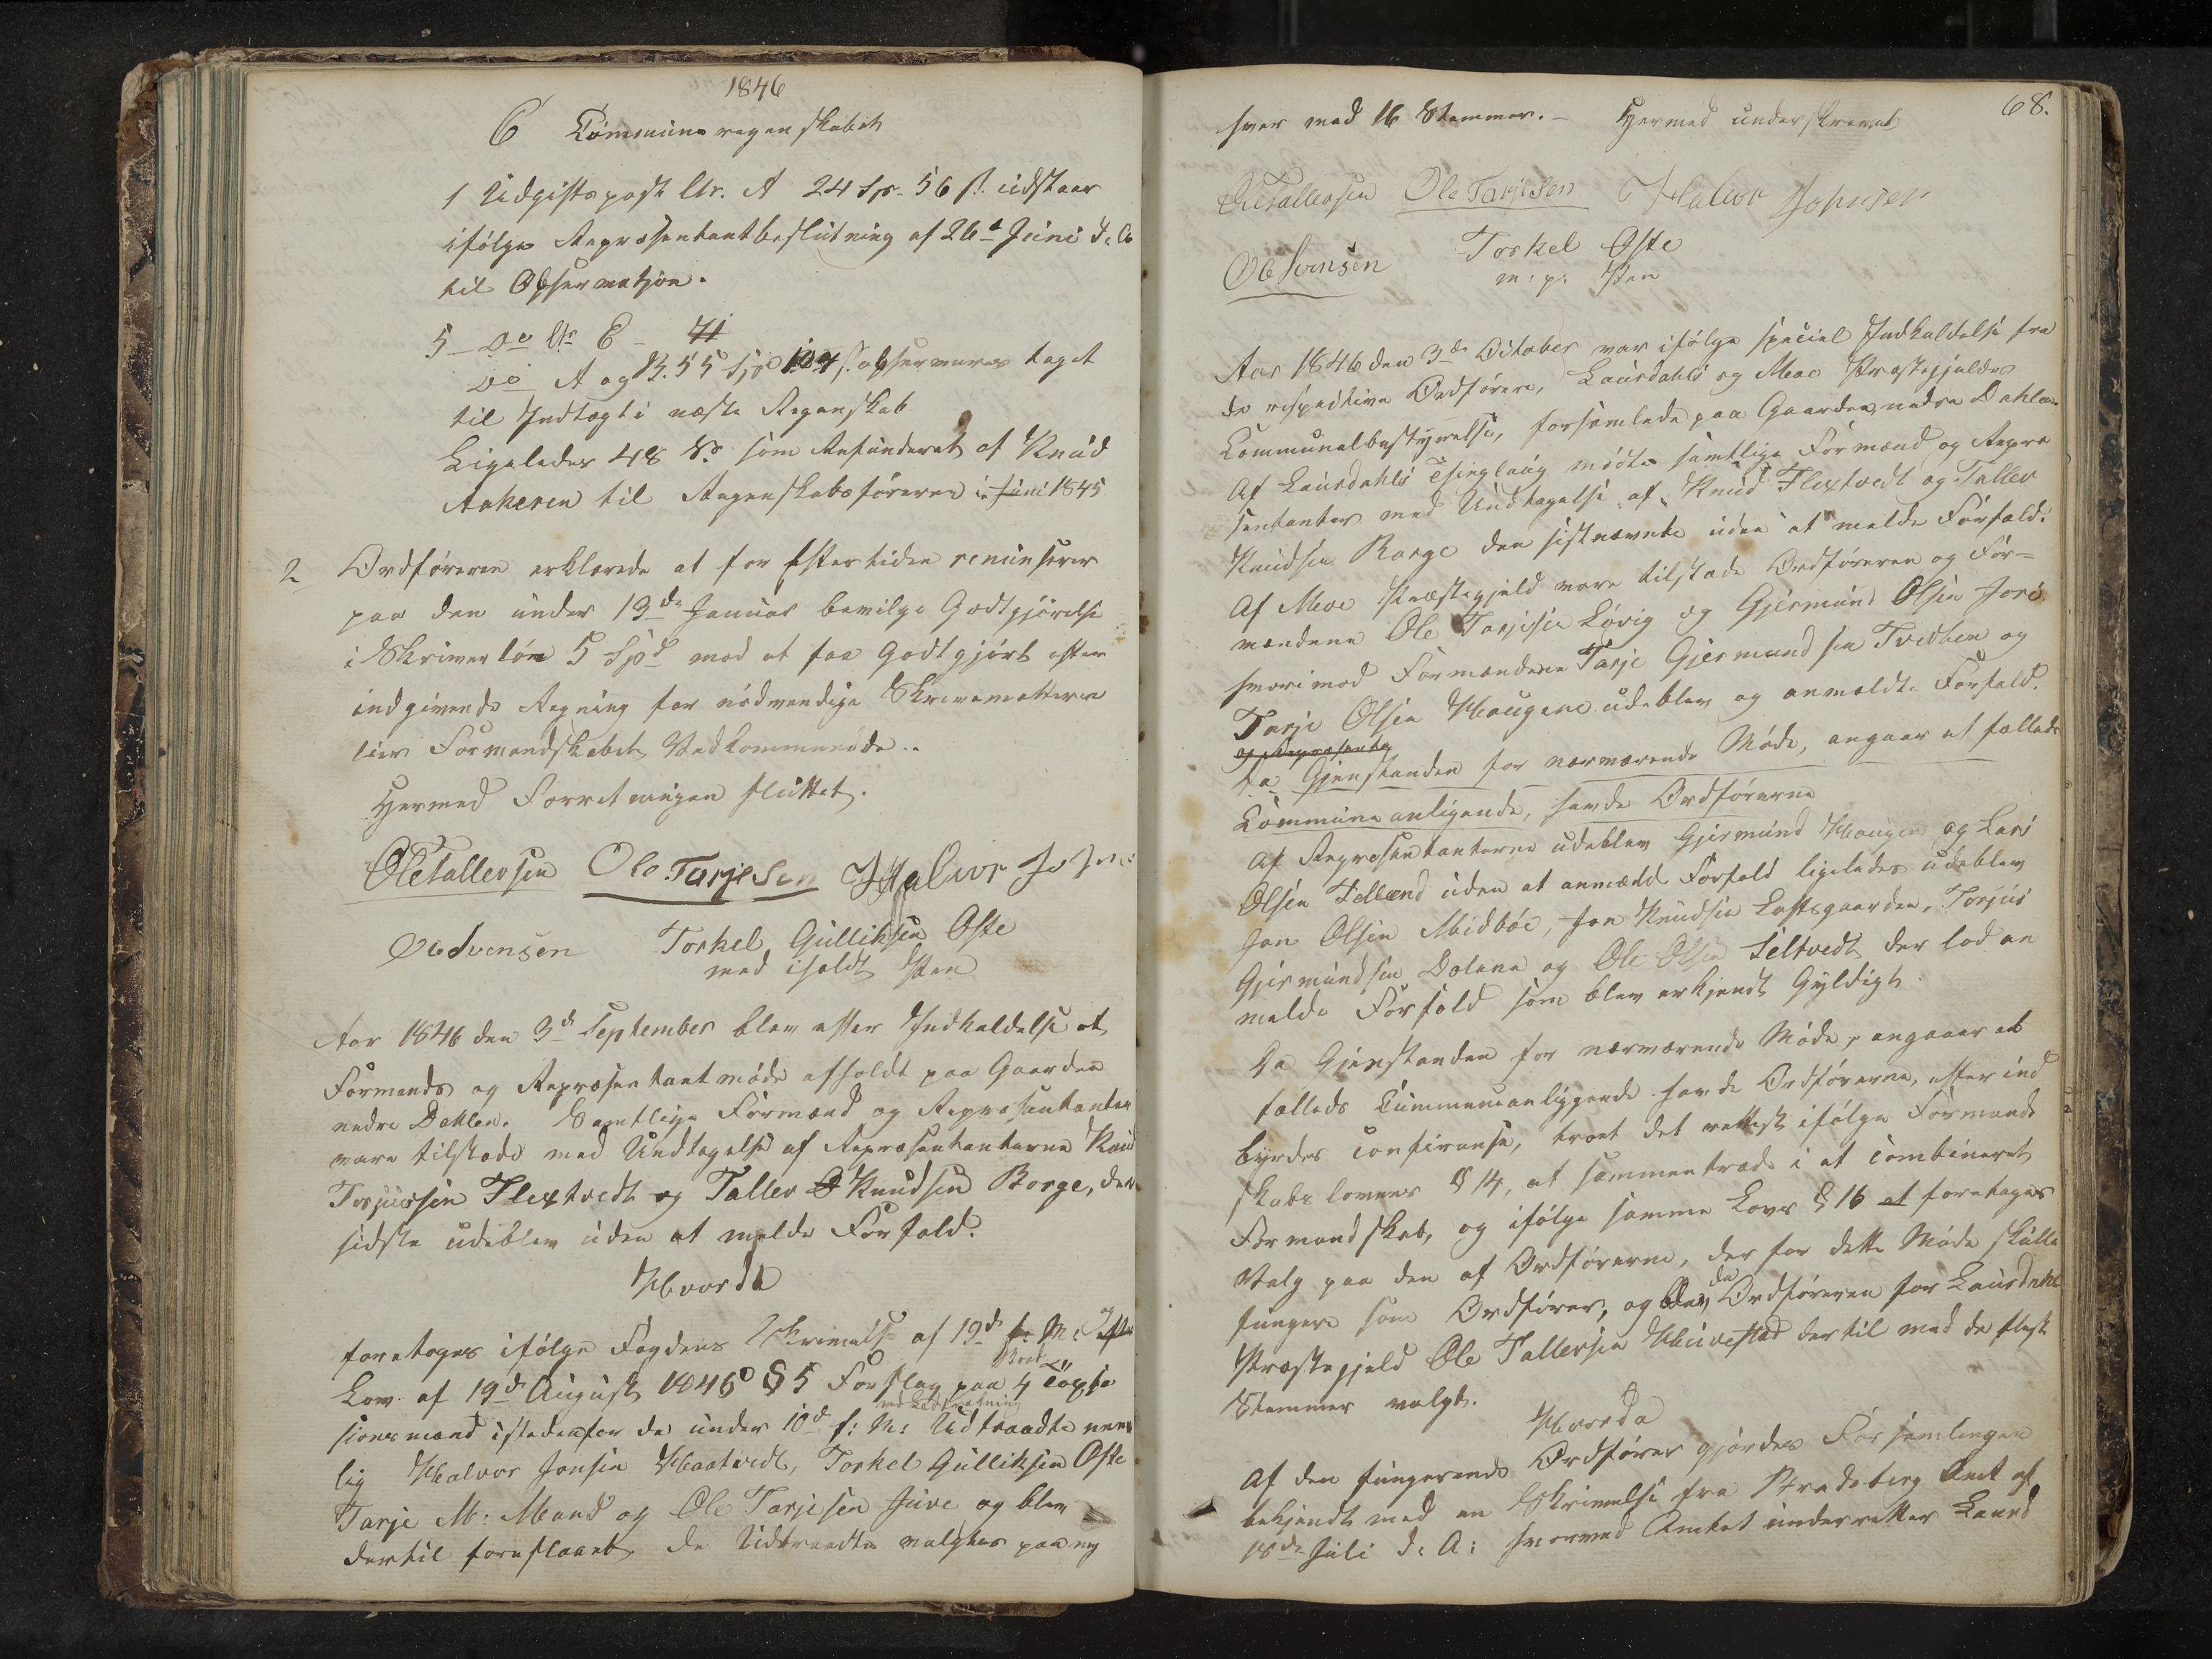 1846
6 Commune regenskabet
1 Udgiftspost Ltr. A 24 Spd. 56 s. udstaar
ifølge Repræsentantbeslutning af 26de Juni d: A
til Observation.
5 do Ltr. C - 71
do A og B. 55 Spd 104 s. observeres taget
til Indtægt i næste Regenskab
Ligeledes 48 som Refunderet af Knud
Aakeren til Regenskabsføreren i Juni 1845
2 Ordføreren erklærede at for Eftertiden renunserer
paa den under 19de Januar bevilge Godtgjørelse
i Skriverløn 5 Spd mod at faa Godtgjørt efter
indgivende Regning for nødvendige Skrivematteria
lier Formandskabet Vedkommende..
Hermed Forretningen sluttet.
Ole Tallevsen Ole Tarjesen Halvor
Ole Svensen Torkel Gulliksen Ofte
med iholdt Pen
Aar 1846 den 3de September blev efter Indkaldelse et
Formands og Repræsentantmøde afholdt paa Gaarden
nedre Dahlen. Samtlige Formænd og Repræsentanter
vare tilstæde med Undtagelse af Repræsentanterne Knud
Torjussen Flextvedt og Tallev Knudsen Borge, den
sidste udeblev uden at melde Forfald.
Hvorda
foretoges ifølge Fogdens Skrivelse af 19de f: M:
Lov af 19de August 1845 § 5 Forslag paa 4 Taxta
ved Lodtrækning
sionsmænd istedenfor de under 10de f: M: Udtraadte nem
lig Halvor Jonsen Haatvedt, Torkel Gulliksen Ofte
Tarje M: Mand og Ole Tarjesen Juve og blev
dertil foreslaaet de Udtraadte valgtes paa ny
68.
hver med 16 Stemmer. – Hermed underskrevet
Ole Tallevsen Ole Tarjesen Halvor Johnsen
Ole Svensen Torkel Ofte
m: p: Pen
Aar 1846 den 3de October var ifølge special Indkaldelse fra
de respective Ordførere, Laurdahls og Moe Præstegjældes
Communalbestyrelse, forsamlede paa Gaarden nedre Dahlen.
Af Laurdahls Thinglaug mødte samtlige Formænd og Repræ
sentanter med Undtagelse af Knud Flextvedt og Tallev
Knudsen Borge den sistnævnte uden at melde Forfald.
Af Moe Præstegjeld vare tilstæde Ordføreren og For-
mændene Ole Tarjesen Løvig og Gjermund Olsen Jore
hvorimod Formændene Tarje Gjermundsen Tvedten og
Tarje Olsen Haugene udeblev og anmeldte Forfald.
og Repræsenta
Da Gjenstanden for nærværende Møde, angaar et fælleds
Communeanligende, havde Ordførerne
Af Repræsentanterne udeblev Gjermund Haugen og Lars
Olsen Felland uden at anmeldt Forfald ligeledes udeblev
Jon Olsen Midbøe, Jon Knudsen Loftsgaarden, Torjus
Gjermundsen Dolene og Ole Olsen Seltvedt der lod an
melde Forfald som blev erkjendt Gyldigt.
Da Gjenstanden for nærværende Møde, angaaer et
fælleds Kummuneanliggende havde Ordførerne, efter ind
byrdes Conferanse, troet det rettest ifølge Formands
skabslovens § 14, at sammentræde i et Combineret
Formandskab, og ifølge samme Lovs § 16 at foretages
Valg paa den af Ordførerne, der for dette Møde skulle
da
fungere som Ordfører, og blev Ordføreren for Laurdahl
Præstegjeld Ole Tallevsen Huvestad dertil med de fleste
Stemmer valgt.
Hvorda
Af den fungerende Ordfører gjordes Forsamlingen
bekjendt med en Skrivelse fra Bradsberg Amt af
18de Juli d: A: hvorved Amtet underretter Laurd